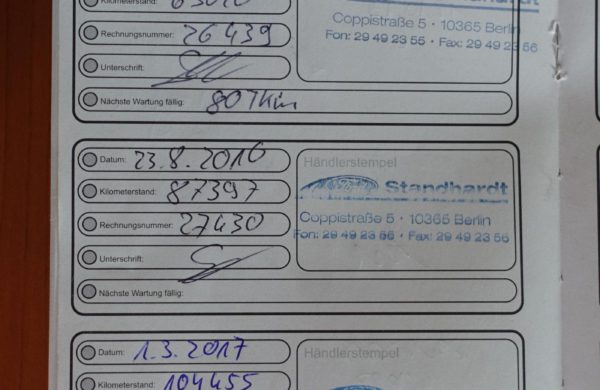 Kilometerstand:
Rechnungsnummer: 26439
Unterschrift:
Nächste Wartung fällig: 80Tkm
Standhardt
Coppistraße 5 · 10365 Berlin
Fon: 29 49 23 55 · Fax: 29 49 23 56
Datum: 23.8.2016
Kilometerstand: 87397
Rechnungsnummer: 27430
Unterschrift:
Nächste Wartung fällig:
Händlerstempel
Standhardt
Coppistraße 5 · 10365 Berlin
Fon: 29 49 23 55 · Fax: 29 49 23 56
Datum: 1.3.2017
Kilometerstand: 104455
Händlerstempel